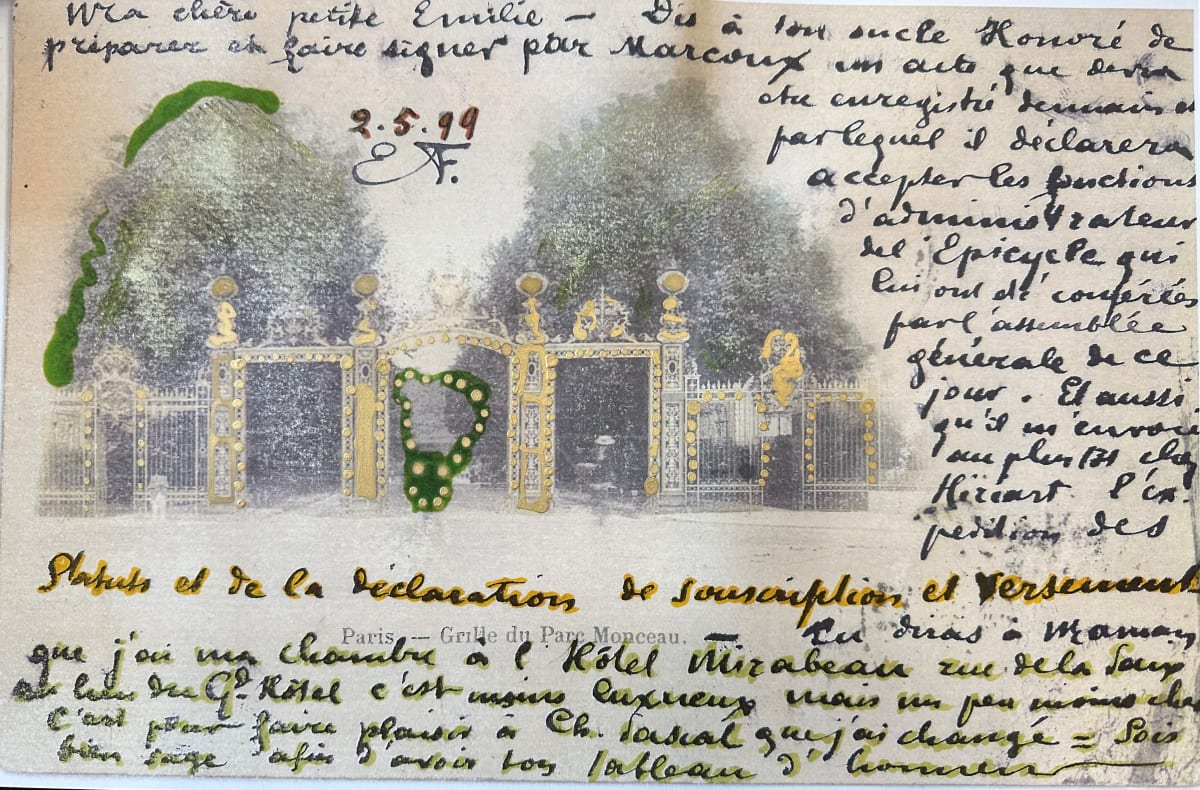 Ma chère petite Emilie — Dis à ton oncle Honoré de
préparer et faire signer par Marcoux un acte que devra
être enregistré demain et
par lequel il déclarera
accepter les fonctions
d'administrateur
de l'Epicycle qui
lui ont été conférées
par l'assemblée
générale de ce
jour. Et aussi
qu'il m'envoie
au plus tôt chez
l'ex-
pédition des
2.5.99
Statuts et de la déclaration de souscription et versement
Paris. — Grille du Parc Monceau.
— Tu diras à Maman
que j'ai ma chambre à l'Hôtel Mirabeau rue de la Paix
au lieu du Gd Hôtel c'est moins luxueux mais un peu moins cher
C'est pour faire plaisir à Ch. Pascal que j'ai changé = Sois
bien sage afin d'avoir ton Tableau d'honneur